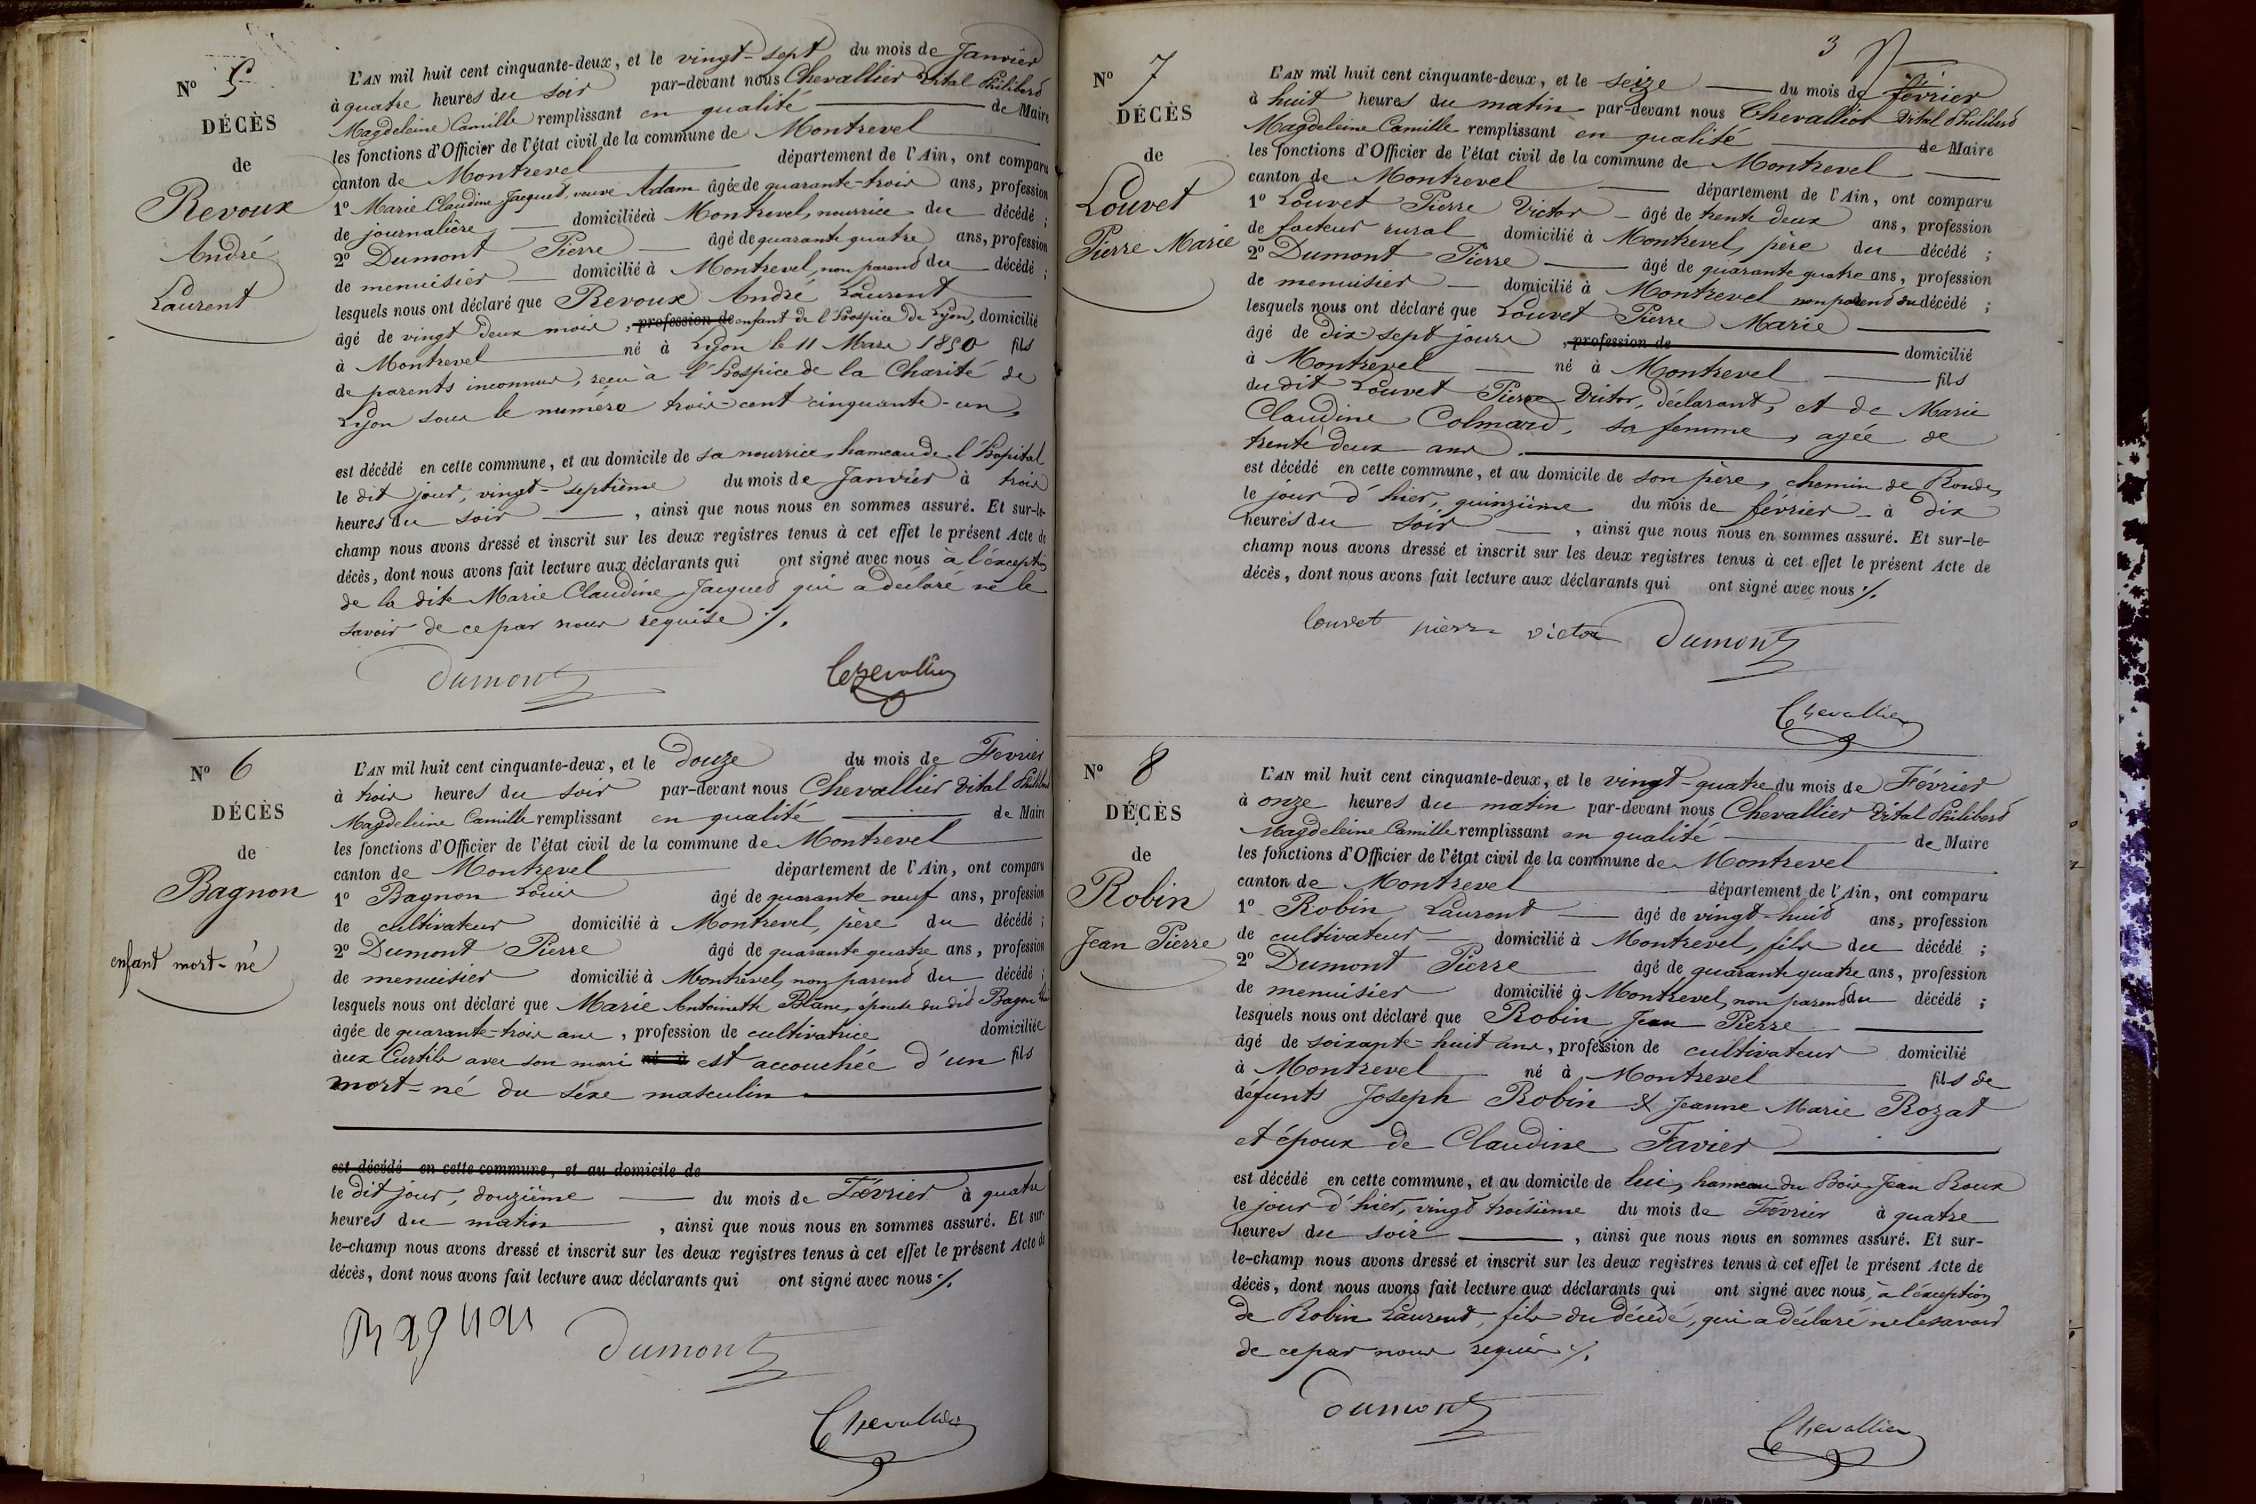 N° 5
DÉCÈS
de
Revoux
André
Laurent
L'AN mil huit cent cinquante-deux, et le vingt-sept du mois de Janvier
à quatre heures du soir par-devant nous Chevallier Vital Philibert
Magdeleine Camille remplissant en qualité de Maire
les fonctions d'Officier de l'état civil de la commune de Montrevel
canton de Montrevel département de l'Ain, ont comparu
1° Marie Claudine Jacquet, veuve Adam âgée de quarante-trois ans, profession
de journalière domiciliée à Montrevel, nourrice du décédé ;
2° Dumont Pierre âgé de quarante quatre ans, profession
de menuisier domicilié à Montrevel, non parent du décédé ;
lesquels nous ont déclaré que Revoux André Laurent
âgé de vingt deux mois, profession de enfant de l'hospice de Lyon, domicilié
à Montrevel né à Lyon le 11 Mars 1850 fils
de parents inconnus, reçu à l'hospice de la Charité de
Lyon sous le numéro trois-cent cinquante-un,
est décédé en cette commune, et au domicile de sa nourrice, hameau de l'hôpital
le dit jour, vingt-septième du mois de Janvier à trois
heures du soir, ainsi que nous nous en sommes assuré. Et sur-le-
champ nous avons dressé et inscrit sur les deux registres tenus à cet effet le présent Acte de
décès, dont nous avons fait lecture aux déclarants qui ont signé avec nous à l'exception
de la dite Marie Claudine Jacquet qui a déclaré ne le
savoir de ce par nous requise ./.
Dumont
Chevallier
N° 6
DÉCÈS
de
Bagnon
enfant mort-né
L'AN mil huit cent cinquante-deux, et le douze du mois de Fevrier
à trois heures du soir par-devant nous Chevallier Vital Philibert
Magdeleine Camille remplissant en qualité de Maire
les fonctions d'Officier de l'état civil de la commune de Montrevel
canton de Montrevel département de l'Ain, ont comparu
1° Bagnon Louis âgé de quarante neuf ans, profession
de cultivateur domicilié à Montrevel, père du décédé ;
2° Dumont Pierre âgé de quarante quatre ans, profession
de menuisier domicilié à Montrevel, non parent du décédé ;
lesquels nous ont déclaré que Marie Antoinette Blanc, épouse du dit Bagnon
âgée de quarante-trois ans, profession de cultivatrice domiciliée
aux Curtils avec son mari né à est accouchée d'un fils
mort-né du sèxe masculin
est décédé en cette commune, et au domicile de
le dit jour, douzième du mois de Février à quatre
heures du matin, ainsi que nous nous en sommes assuré. Et sur-
le-champ nous avons dressé et inscrit sur les deux registres tenus à cet effet le présent Acte de
décès, dont nous avons fait lecture aux déclarants qui ont signé avec nous ./.
Bagnon
Dumont
Chevallier
3
N° 7
DÉCÈS
de
Louvet
Pierre Marie
L'AN mil huit cent cinquante-deux, et le seize du mois de février
à huit heures du matin par-devant nous Chevallier Vital Philibert
Magdeleine Camille remplissant en qualité de Maire
les fonctions d'Officier de l'état civil de la commune de Montrevel
canton de Montrevel département de l'Ain, ont comparu
1° Louvet Pierre Victor âgé de trente deux ans, profession
de facteur rural domicilié à Montrevel, père du décédé ;
2° Dumont Pierre âgé de quarante quatre ans, profession
de menuisier domicilié à Montrevel non parent du décédé ;
lesquels nous ont déclaré que Louvet Pierre Marie
âgé de dix-sept jours, profession de domicilié
à Montrevel né à Montrevel fils
du dit Louvet Pierre Victor, déclarant, et de Marie
Claudine Colmard, sa femme, agée de
trente deux ans.
est décédé en cette commune, et au domicile de son père, chemin de Ronde,
le jour d'hier, quinzième du mois de février à dix
heures du soir, ainsi que nous nous en sommes assuré. Et sur-le-
champ nous avons dressé et inscrit sur les deux registres tenus à cet effet le présent Acte de
décès, dont nous avons fait lecture aux déclarants qui ont signé avec nous ./.
louvet pierre victor Dumont
Chevallier
N° 8
DÉCÈS
de
Robin
Jean Pierre
L'AN mil huit cent cinquante-deux, et le vingt-quatre du mois de Février
à onze heures du matin par-devant nous Chevallier Vital Philibert
Magdeleine Camille remplissant en qualité de Maire
les fonctions d'Officier de l'état civil de la commune de Montrevel
canton de Montrevel département de l'Ain, ont comparu
1° Robin Laurent âgé de vingt-huit ans, profession
de cultivateur domicilié à Montrevel, fils du décédé ;
2° Dumont Pierre âgé de quarante quatre ans, profession
de menuisier domicilié à Montrevel, non parent du décédé ;
lesquels nous ont déclaré que Robin Jean Pierre
âgé de soixante-huit ans, profession de cultivateur domicilié
à Montrevel né à Montrevel fils de
défunts Joseph Robin & Jeanne Marie Rozat
et époux de Claudine Favier
est décédé en cette commune, et au domicile de lui, hameau du Bois Jean Roux
le jour d'hier, vingt troisième du mois de Février à quatre
heures du soir, ainsi que nous nous en sommes assuré. Et sur-
le-champ nous avons dressé et inscrit sur les deux registres tenus à cet effet le présent Acte de
décès, dont nous avons fait lecture aux déclarants qui ont signé avec nous, à l'exception
de Robin Laurent, fils du décédé, qui a déclaré ne le savoir
de ce par nous requis ./.
Dumont
Chevallier